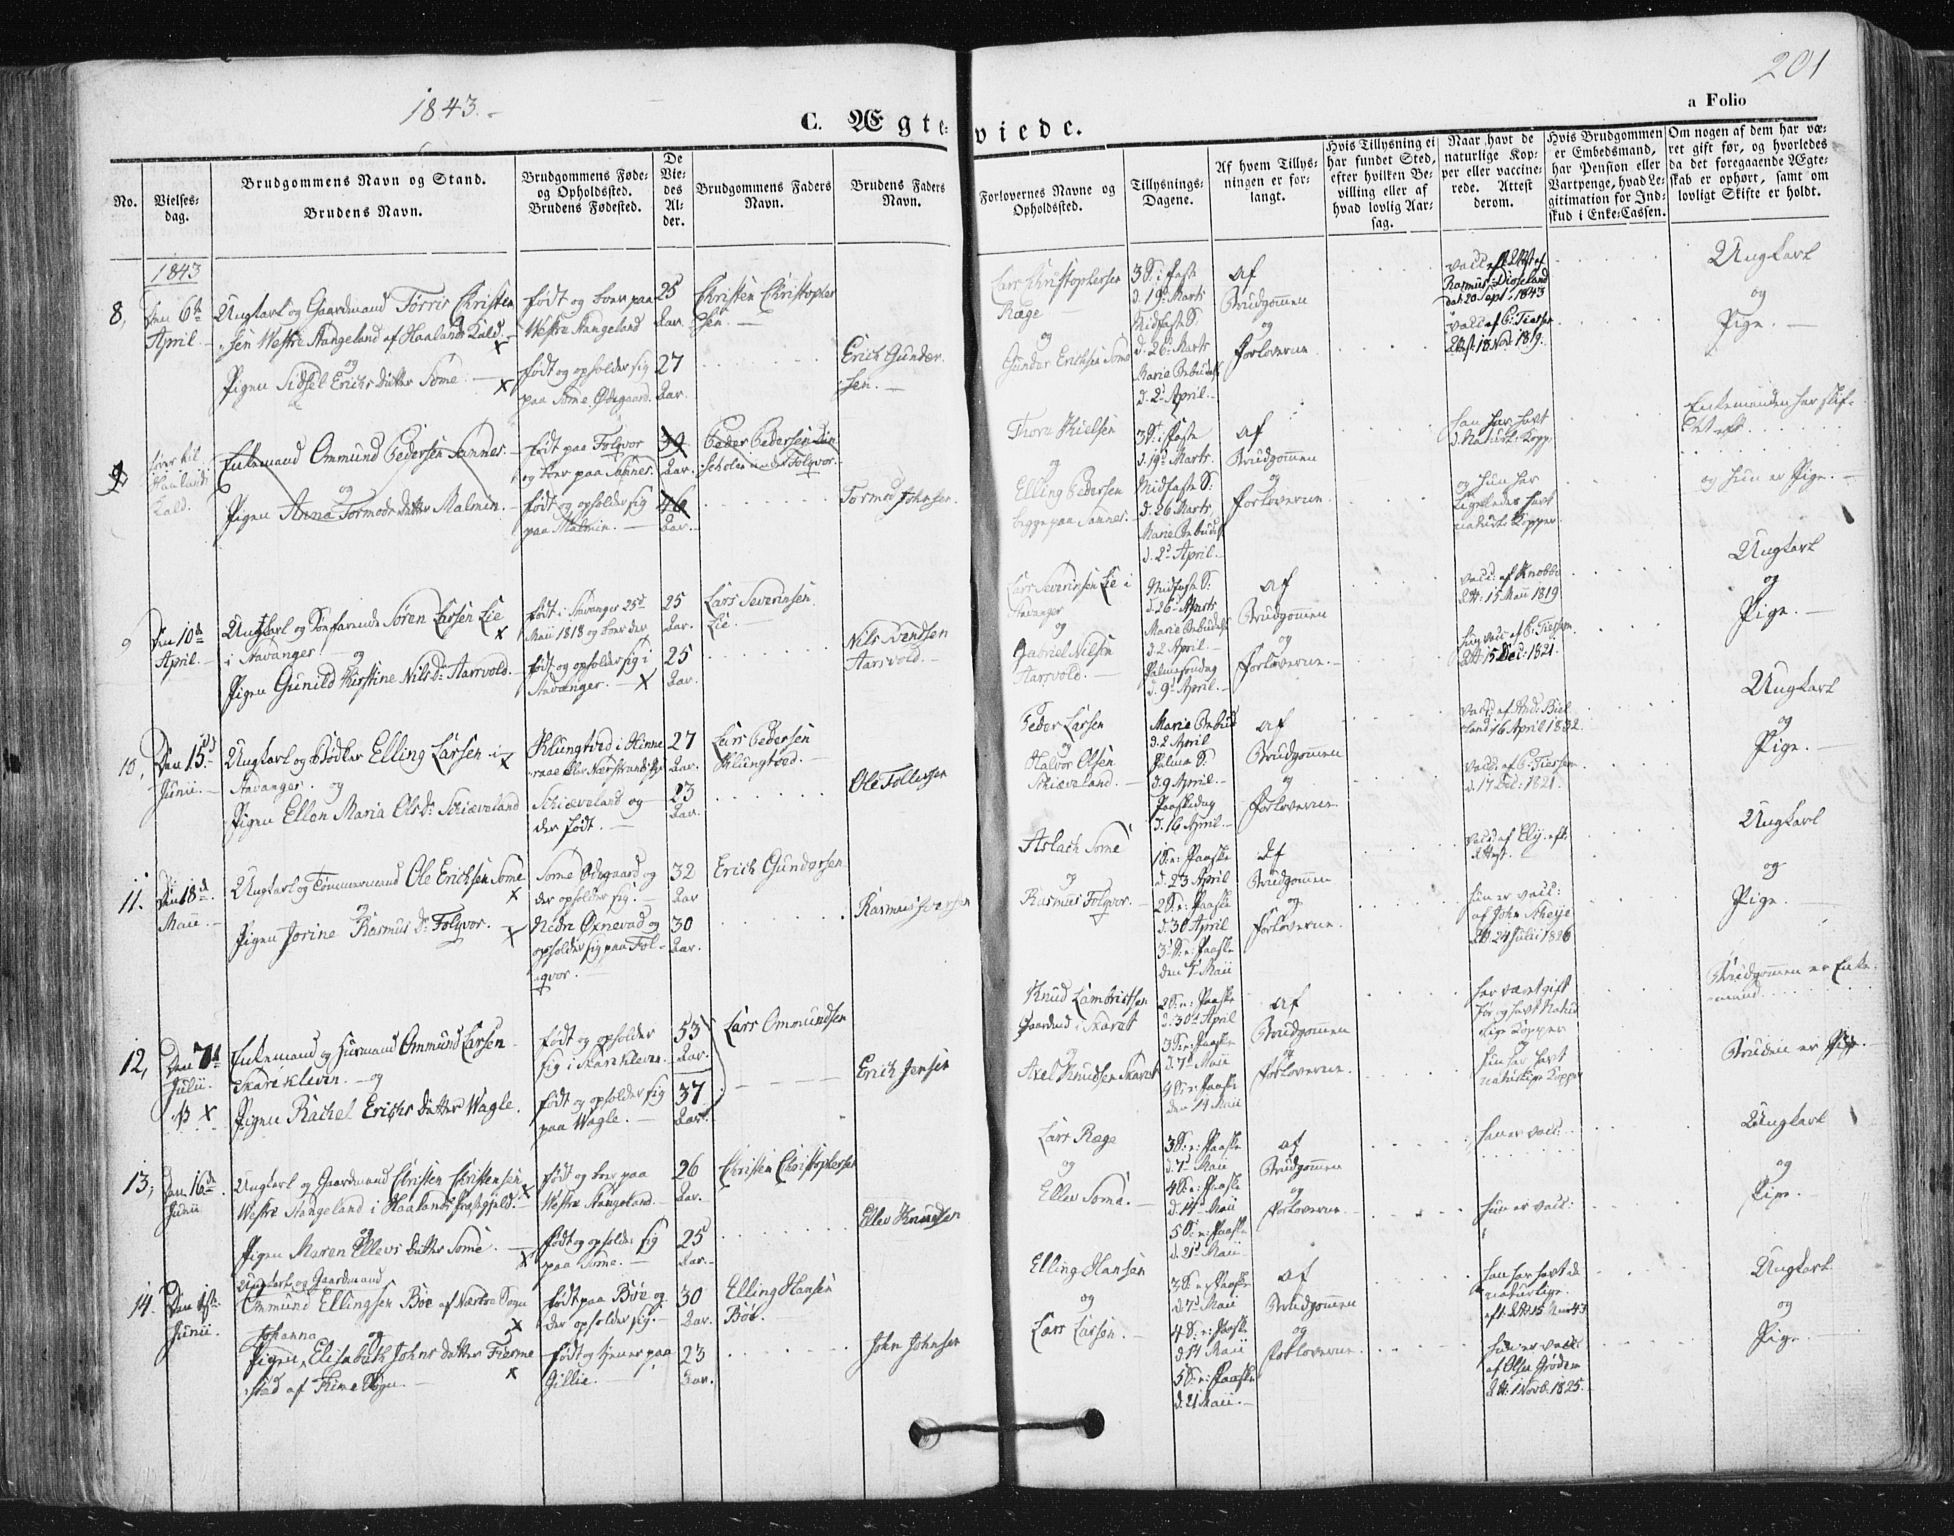 1843.
201
C. Ægteviede.
a Folio
No.
Vielses-dag.
Brudgommens Navn og Stand.
Brudens Navn.
Brudgommens Føde- og Opholdssted.
Brudens Fødested.
De Viedes Alder.
Brudgommens Faders Navn.
Brudens Faders Navn.
Forlovernes Navne og Opholdssted.
Tillysnings-Dagene.
Af hvem Tillysningen er forlangt.
Hvis Tillysning ei har fundet Sted, efter hvilken Bevilling eller af hvad lovlig Aarsag.
Naar havt de naturlige Kopper eller vaccinerede. Attest derom.
Hvis Brudgommen er Embedsmand, har Pension eller Vartpenge, hvad Legitimation for Indskud i Enke-Cassen.
Om nogen af dem har været gift før, og hvorledes da det foregaaende Ægteskab er ophørt, samt om lovligt Skifte er holdt.
1843
8, Den 6te April
Ungkarl og Gaardmand Tørris Christensen Westre Stangeland af Haalands Kald
og
Pigen Sidsel Erichs datter Some
født og boer paa Westre Stangeland
født og opholder sig paa Some Ødegaard.
25 Aar.
27 Aar.
Christen Christophersen.
Erich Gundersen.
Lars Christophersen Ræge
og
Gunder Erichsen Some
3 S: i Faste d. 19de Marts
Midfaste S. d. 26 Marts
Marie Bebudels d. 2d April.
af Brudgommen og Forloverne
Rasmus Diøseland dat: 20 Sept: 1843
vacc: af C: Tiessen Att: 18 Nov: 1819.
Ungkarl
og
Pige.
Haalands Kald.
Enkemand Ommund Pedersen Sannes
og
Pigen Anna Tormods datter Malmin.
født paa Folqvor og boer paa Sannes.
født og opholder sig paa Malmin.
39 Aar.
46 Aar.
Tormod Johnsen.
Thore Thielsen
og
Elling Pedersen begge paa Sannes.
3 S: i Faste d. 19de Marts.
Midfaste S: d. 26 Marts.
Marie Bebudels d. 2d April.
af Brudgommen og Forloverne
han har havt d. Naturl: Kopp:
og hun har ligeledes havt naturl: Kopper
og hun er Pige.
9 Den 10de April.
Ungkarl og Søefarende Søren Larsen Lie i Stavanger
og
Pigen Gunild Kirstine Nils D: Aarrvold.
født i Stavanger 25d Maii 1818 og boer der
født og opholder sig i Stavanger.
25 Aar.
25 Aar.
Lars Severinsen Lie.
Nils Svendsen Aarrvold.
Lars Severinsen Lie i Stavanger
og
Gabriel Nilsen Aarrvold.
Midfaste S: d. 26 Marts
Marie Bebudels d. 2 April.
Palmesøndag d. 9d April.
af Brudgommen og Forloverne.
vacc: af Knobbe Att: 15 Maii 1819
hun vacc: af C: Tiessen Att: 15 Dec: 1821.
Ungkarl
og
Pige.
10, Den 15d Junii.
Ungkarl og Bødker Elling Larsen i Stavanger. og
Pigen Ellen Maria Ols D: Schiæveland
Schiæveland og der født.
27 Aar.
23 Aar.
Lars Pedersen Klungtved.
Ole Tollefsen
Peder Larsen
og
Halvor Olsen Schiæveland.
Marie Bebud d. 2 April
Palme S: d. 9 April.
Paaskedag d. 16 April.
af Brudgommen og Forloverne
vacc: af C: Tiessen d. 17 Dec: 1821.
Ungkarl
og
Pige.
11. Den 18d. Maii
Ungkarl og Tømmermand Ole Erichsen Some
og
Pigen Jorine Rasmus D: Folqvor.
Some Ødegaard og der opholder sig.
Nedre Øxnevad og opholder sig paa Folqvor.
32 Aar
30 Aar.
Erich Gundersen
Rasmus Iversen
Aslach Some
og
Rasmus Folqvor.
1 S: e: Paaske d. 23 April
2 S: e: Paaske d. 30 April
3 S: e: Paaske den 7 Maii
Af Brudgommen og Forloverne.
hun er vacc: af John Theije Att 24 Julii 1826
Ungkarl
og
Pige.
12, Den 7d Julii.
Enkemand og Huusmand Ommund Larsen Skareklèven. og
Pigen Rachel Erichs datter Wagle.
født og opholder sig i Skareklèven.
født og opholder sig paa Wagle.
53 Aar.
37 Aar.
Lars Ommundsen
Erich Jensen
Knud Lambrictsen Gaardmd i Skaret
og
Axel Knudsen Skaret
2 S: e: Paaske d. 30te April
3 S: e: Paaske d. 7d Maii
4 S: e: Paaske den 14 Maii
af Brudgommen og Forloverne.
har været gift før og havt Naturlige Kopper
og
hun har havt naturlige Kopper
Brudgommen er Enkemand
Bruden er Pige.
13, Den 16de Junii
Ungkarl og Gaardmand Christen Christensen Westre Stangeland i Haalands Præstegjeld.
og
Pigen Maren Ellevs datter Some.
født og boer paa Westre Stangeland.
født og opholder sig paa Some.
26 Aar.
25 Aar.
Christen Christophersen
Ellev Knudsen
Lars Ræge
og
Ellev Some.
3 S: e: Paaske d. 7d Maii
4 S: e: Paaske d. 14d Maii
5 S: e: Paaske d. 21d Maii
af Brudgommen og Forloverne.
han er vacc:
hun er vacc:
Ungkarl
og
Pige.
14. Den 1ste Junii.
Ungkarl og Gaardmand
Ommund Ellingsen Bøe af Nærbøe Sogn
og
Johanna
Pigen Elisabeth Johns datter Fiermestad af Thime Sogn.
født paa Bøe og der opholder sig.
født og tjener paa Gillie.
30 Aar.
23 Aar.
Elling Hansen Bøe.
John Johnsen
Elling Hansen
og
Lars Larsen.
3 S: e: Paaske d. 7d Maii
4 S: e: Paaske d. 14 Maii
5 S: e: Paaske d. 21 Maii.
af Brudgommen og Forloverne.
han har havt de naturlige.
hun er vacc: af Olsen Grødem Att: 1 Novb: 1825.
Ungkarl
og
Pige.